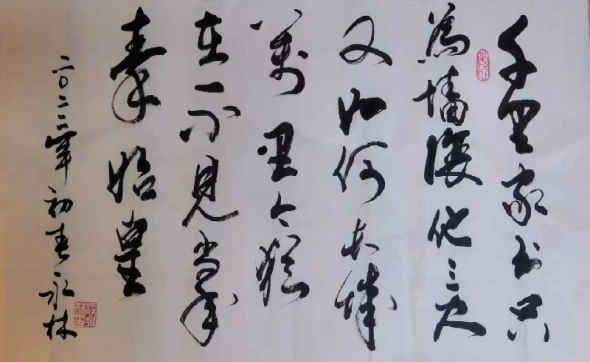 千里家书只
為墻讓他三尺
又如何长城
萬里今猶
在不見当年
秦始皇
二〇二二年初春永林